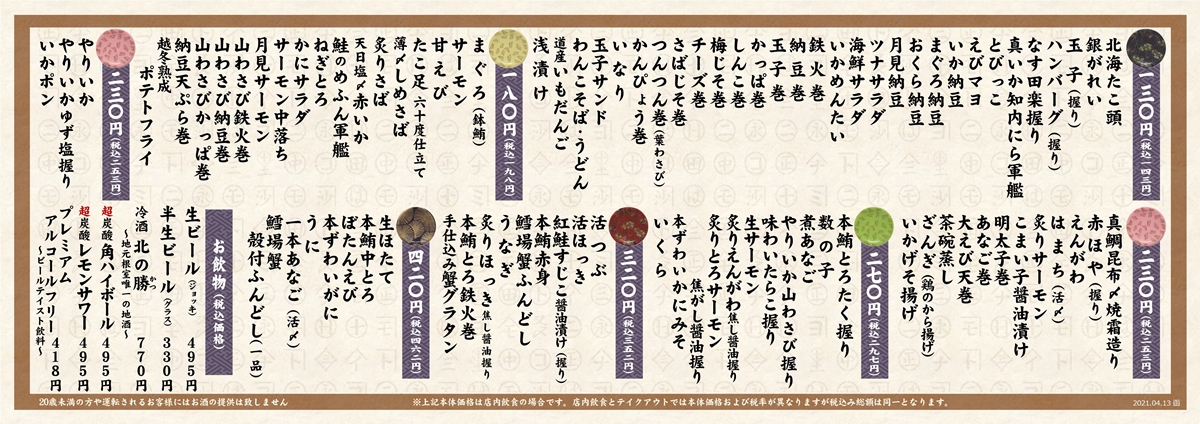 一三〇円（税込一四三円）
北海たこ頭
銀がれい
玉子（握り）
ハンバーグ（握り）
なす田楽握り
真いか知内にら軍艦
とびっこ
えびマヨ
いか納豆
まぐろ納豆
おくら納豆
月見納豆
ツナサラダ
海鮮サラダ
いかめんたい
鉄火巻
納豆巻
玉子巻
かっぱ巻
しんこ巻
梅じそ巻
チーズ巻
さばじそ巻
つんつん巻（葉わさび）
かんぴょう巻
いなり
玉子サンド
わんこそば・うどん
道産いもだんご
浅漬け
一八〇円（税込一九八円）
まぐろ（鉢鮪）
サーモン
甘えび
たこ足〝六十度仕立て
薄〆しめさば
炙りさば
天日塩〆赤いか
鮭のめふん軍艦
ねぎとろ
かにサラダ
サーモン中落ち
月見サーモン
山わさび鉄火巻
山わさび納豆巻
山わさびかっぱ巻
納豆天ぷら巻
越冬熟成
ポテトフライ
二三〇円（税込二五三円）
やりいか
やりいかゆず塩握り
いかポン
二三〇円（税込二五三円）
真鯛昆布〆焼霜造り
赤ほや（握り）
えんがわ
はまち（活〆）
炙りサーモン
こまい子醤油漬け
明太子巻
あなご巻
大えび天巻
茶碗蒸し
ざんぎ（鶏のから揚げ）
いかげそ揚げ
二七〇円（税込二九七円）
本鮪とろたく握り
数の子
煮あなご
やりいか山わさび握り
味わいたらこ握り
生サーモン
炙りえんがわ焦し醤油握り
炙りとろサーモン
焦がし醤油握り
本ずわいかにみそ
いくら
三二〇円（税込三五二円）
活つぶ
活ほたて
紅鮭すじこ醤油漬け（握り）
本鮪赤身
鱈場蟹ふんどし
うなぎ
炙りほっき焦し醤油握り
本鮪とろ鉄火巻
手仕込み蟹グラタン
四二〇円（税込四六二円）
生ほたて
本鮪中とろ
ぼたんえび
本ずわいがに
うに
一本あなご（活〆）
鱈場蟹
殻付ふんどし（一品）
お飲物（税込価格）
生ビール（ジョッキ） 495円
半生ビール（グラス） 330円
冷酒 北の勝 かつ 770円
〜地元根室唯一の地酒〜
超炭酸角ハイボール 495円
超炭酸レモンサワー 495円
プレミアム
アルコールフリー 418円
〜ビールテイスト飲料〜
20歳未満の方や運転されるお客様にはお酒の提供は致しません
※上記本体価格は店内飲食の場合です。店内飲食とテイクアウトでは本体価格および税率が異なりますが税込み総額は同一となります。
2021.04.13 函